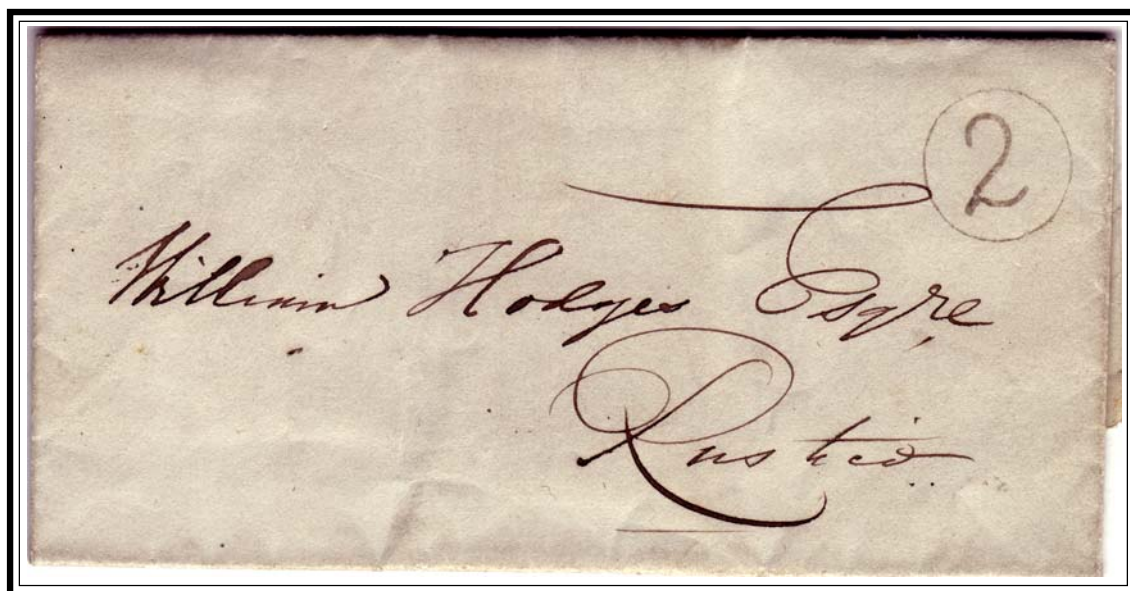 2
William Hodges Esqre
Rustico